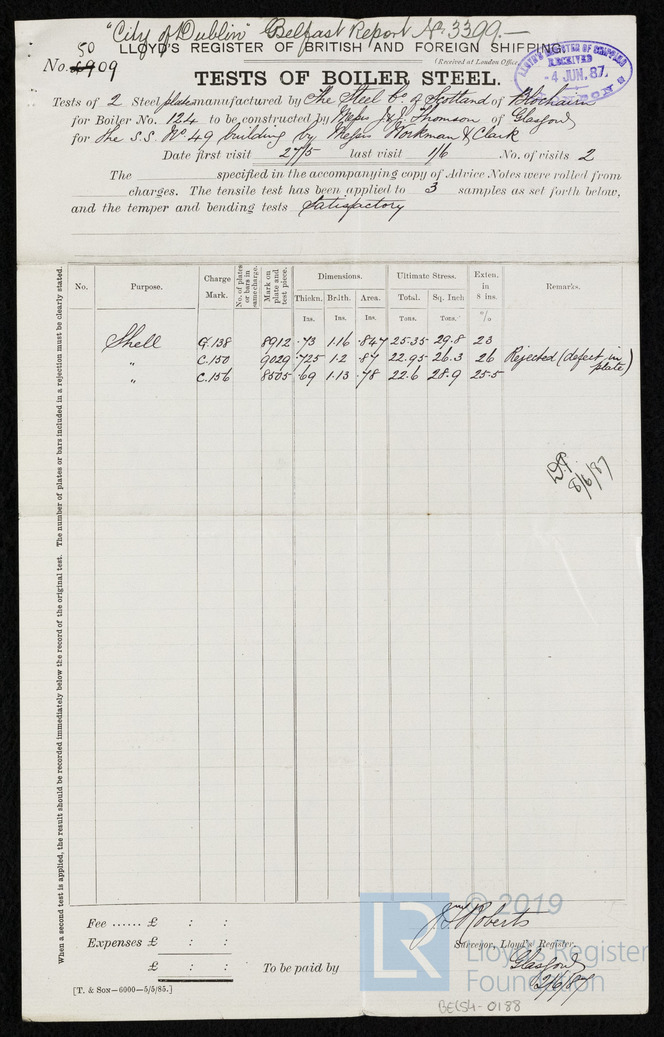 "City of Dublin" Belfast Report No. 3399.—
LLOYD'S REGISTER OF BRITISH AND FOREIGN SHIPPING.
50
No. 6909
(Received at London Office
LLOYD'S REGISTER OF SHIPPING
RECEIVED
-4 JUN. 87.
LONDON
TESTS OF BOILER STEEL.
Tests of 2 Steel plates manufactured by The Steel Co. of Scotland of Blochairn
for Boiler No. 124 to be constructed by Messrs J & G Thomson of Glasgow
for the S.S. No. 49 building by Messrs Workman & Clark
Date first visit 27/5 last visit 1/6 No. of visits 2
The specified in the accompanying copy of Advice Notes were rolled from
charges. The tensile test has been applied to 3 samples as set forth below,
and the temper and bending tests Satisfactory
When a second test is applied, the result should be recorded immediately below the record of the original test. The number of plates or bars included in a rejection must be clearly stated.
No. Purpose. Charge Mark. No. of plates or bars in same charge. Mark on plate and test piece. Dimensions. Ultimate Stress. Exten. in 8 ins. Remarks.
Thickn. Brdth. Area. Total. Sq. Inch
Ins. Ins. Ins. Tons. Tons. %
Shell G.138 8912 .73 1.16 .847 25.35 29.8 23
" C.150 9029 .725 1.2 .87 22.95 26.3 26 Rejected (defect in plate)
" C.156 8505 .69 1.13 .78 22.6 28.9 25.5
8/6/87
Fee ...... £ : :
Expenses £ : :
£ : :
To be paid by
Roberts
Surveyor, Lloyd's Register,
Glasgow
2/6/87
[T. & SON—6000—5/5/85.]
LR
© 2019
Lloyd's Register
Foundation
BEL54-0188